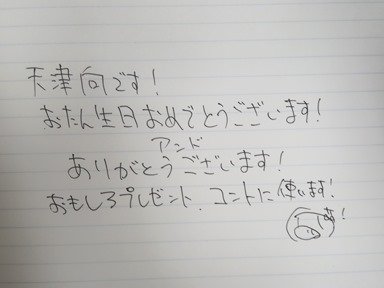 天津向です!
おたん生日おめでとうございます!
アンド
ありがとうございます!
おもしろプレゼント、コントに使います!